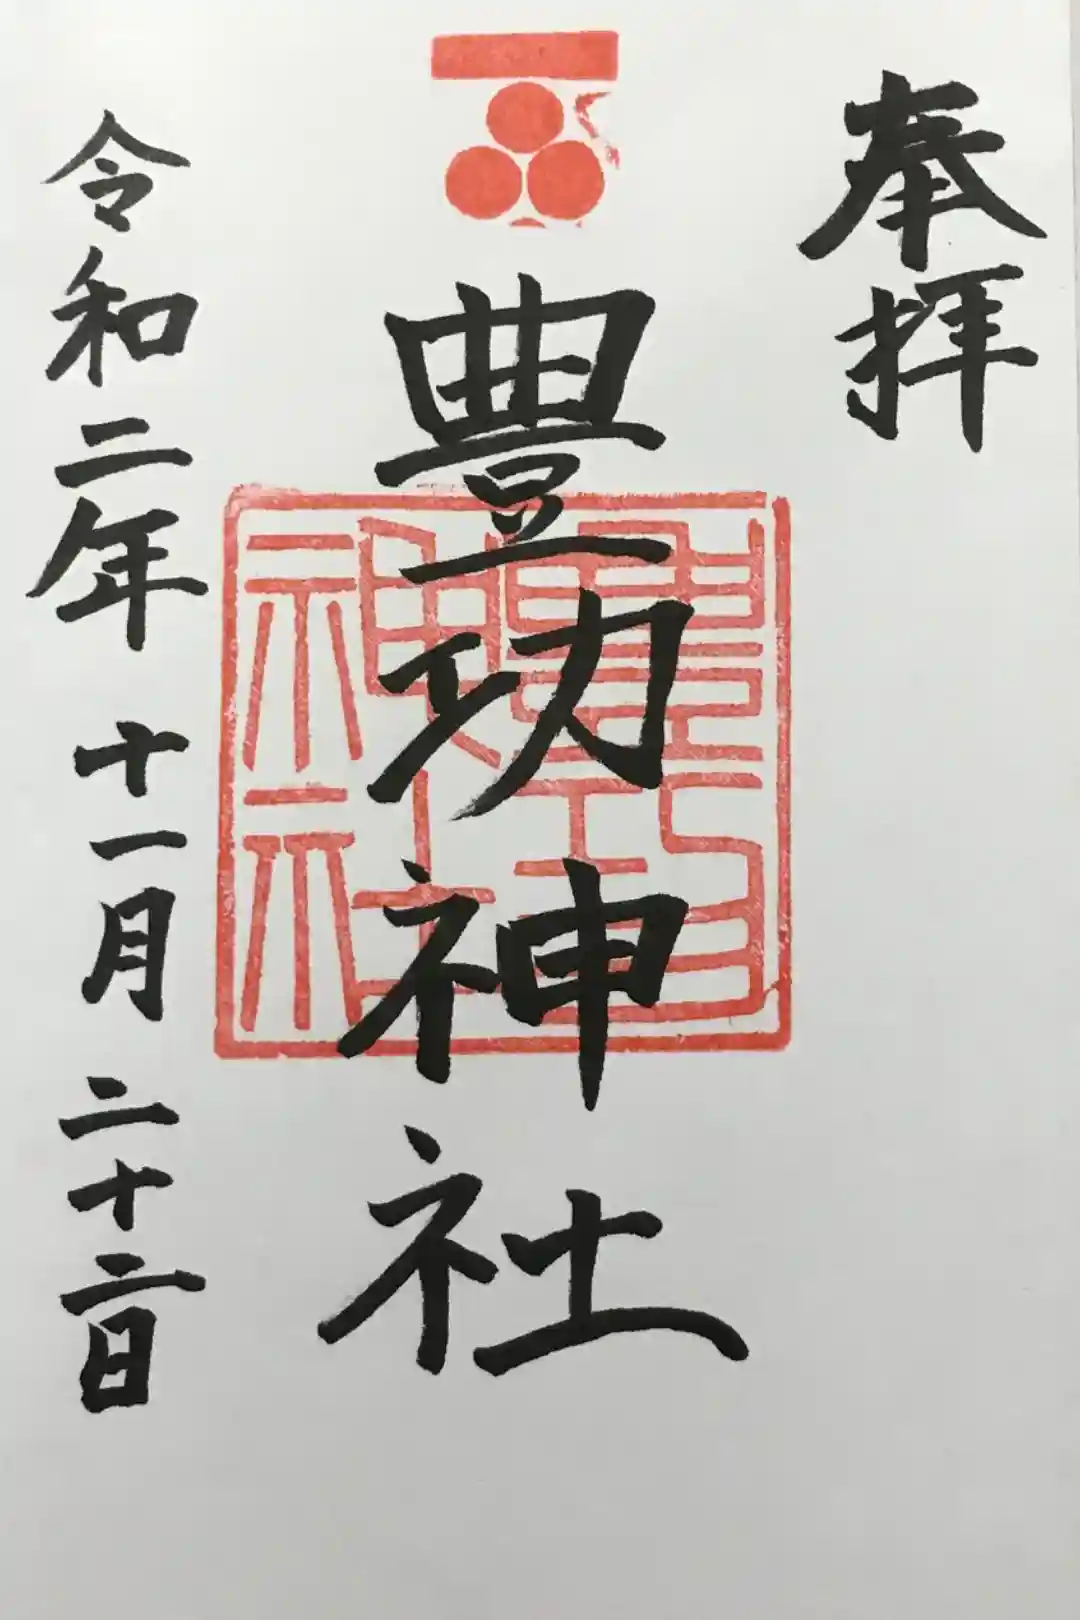 奉拝
豊功神社
豊功神社
令和二年 十一月 二十二日